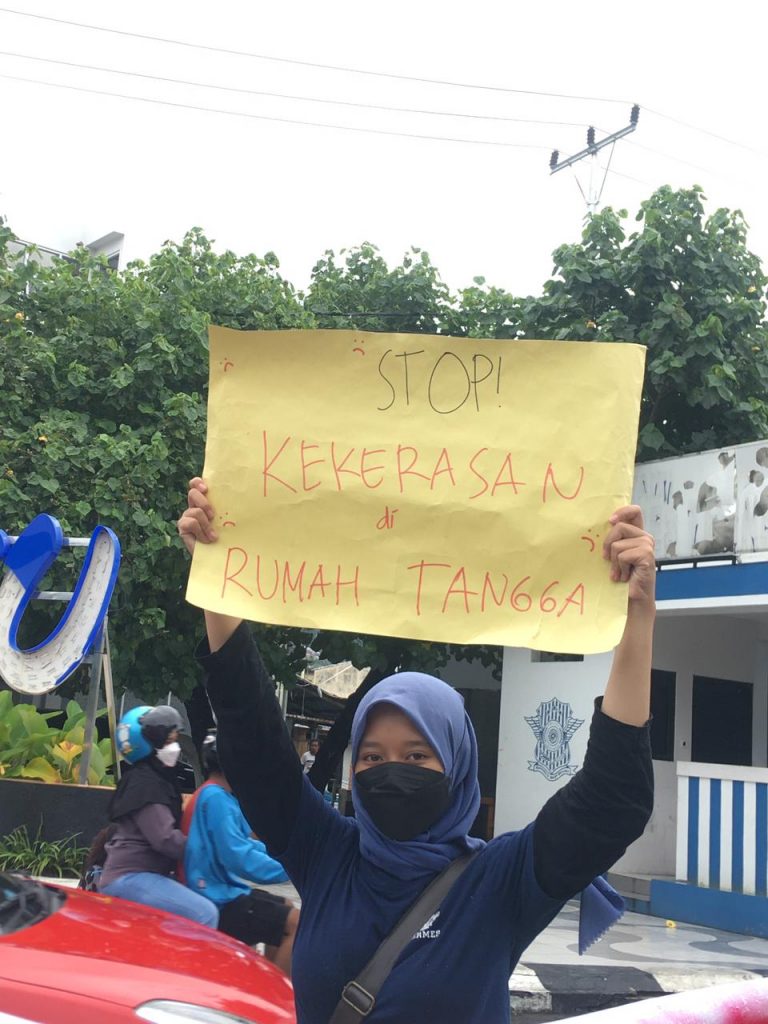 STOP!
KEKERASAN
di
RUMAH TANGGA